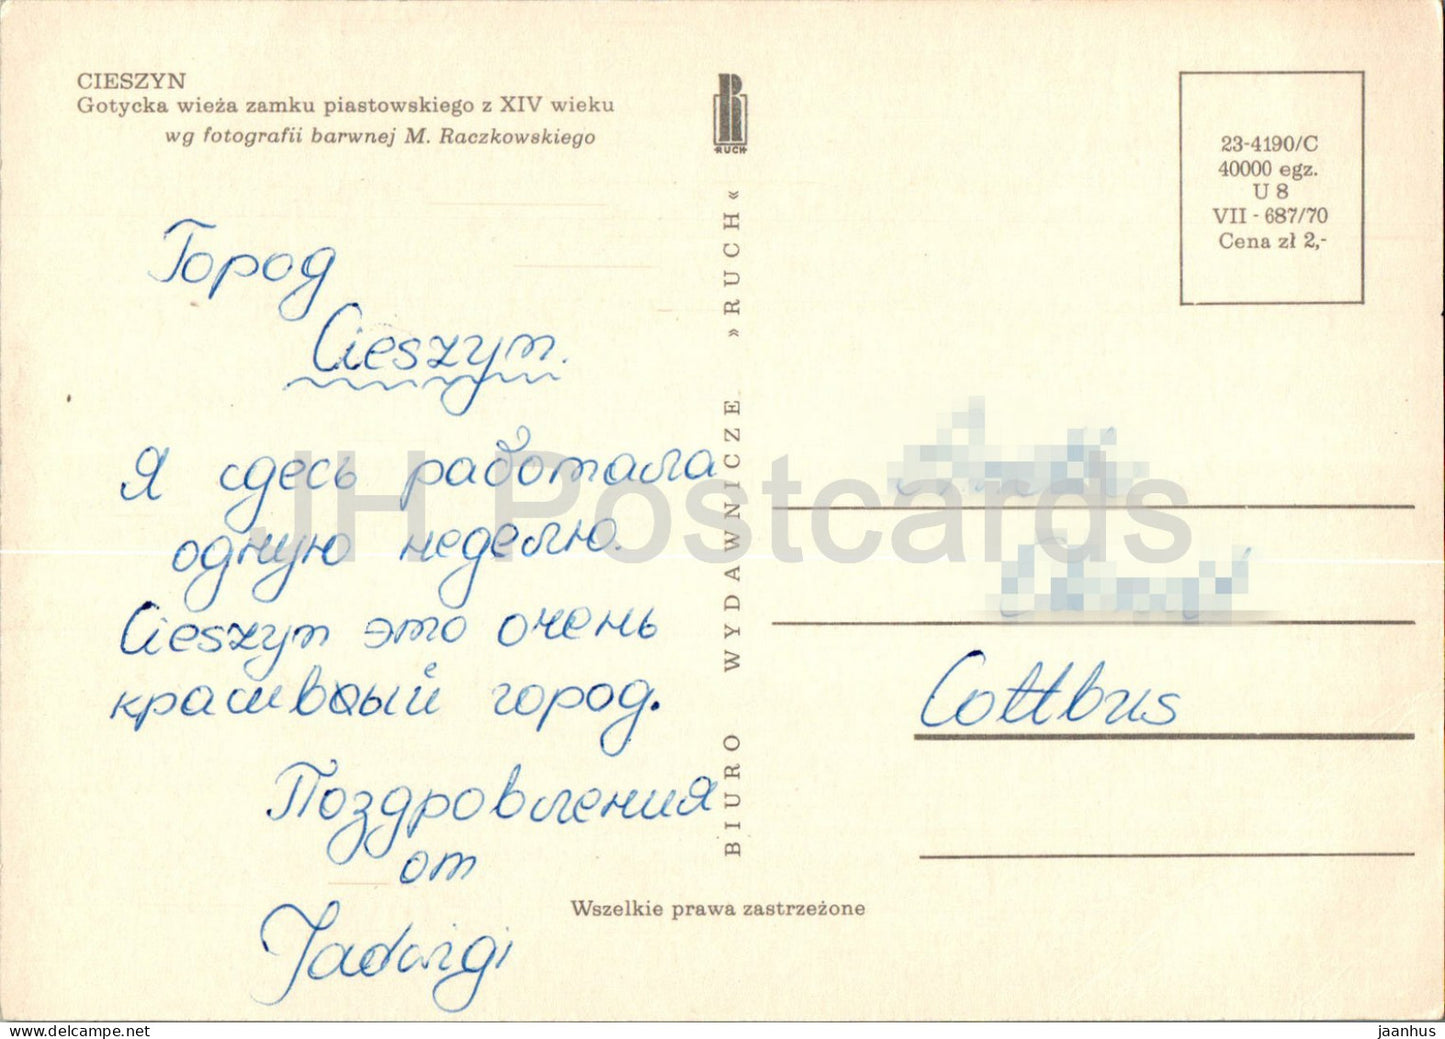 CIESZYN
Gotycka wieża zamku piastowskiego z XIV wieku
wg fotografii barwnej M. Raczkowskiego
RUCH
23-4190/C
40000 egz.
U 8
VII - 687/70
Cena zł 2,-
Город
Cieszyn.
Я сдесь работала
одную неделю.
Cieszyn это очень
красивый город.
Поздровления
от
Jadwigi
BIURO WYDAWNICZE »RUCH«
Cottbus
Wszelkie prawa zastrzeżone
JH Postcards
delcampe.net
jaanhus